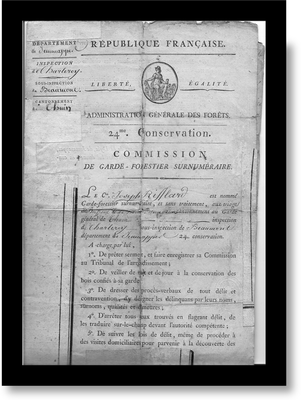 DÉPARTEMENT
RÉPUBLIQUE FRANÇAISE.
de Jemmappes
INSPECTION
de Charleroy
LIBERTÉ, ÉGALITÉ.
de Beaumont
ADMINISTRATION GÉNÉRALE DES FORÊTS.
24me. Conservation.
COMMISSION
DE GARDE-FORESTIER SURNUMÉRAIRE.
Le Cen. Joseph est nommé
Garde-forestier surnuméraire, et sans traitement, aux
de Charleroy sous-inspection de Beaumont
département de Jemmappes 24e. conservation.
A charge par lui,
1o. De prêter serment, et faire enregistrer sa Commission
au Tribunal de l'arrondissement;
2o. De veiller de nuit et de jour à la conservation des
bois confiés à sa garde;
3o. De dresser des procès-verbaux de tout délit et
contravention, d'y désigner les délinquans par leurs noms,
surnoms, qualités et demeures;
4o. D'arrêter tous ceux trouvés en flagrant délit, de
les traduire sur-le-champ devant l'autorité compétente;
5o. De suivre les bois de délit, même de procéder à
des visites domiciliaires pour parvenir à la découverte des